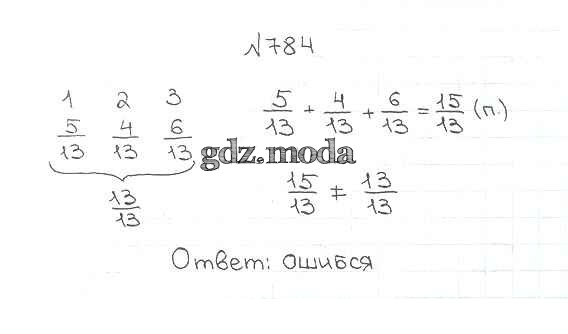 №784
1 2 3
5/13 4/13 6/13
13/13
5/13 + 4/13 + 6/13 = 15/13 (п.)
gdz.moda
15/13 ≠ 13/13
Ответ: ошибся